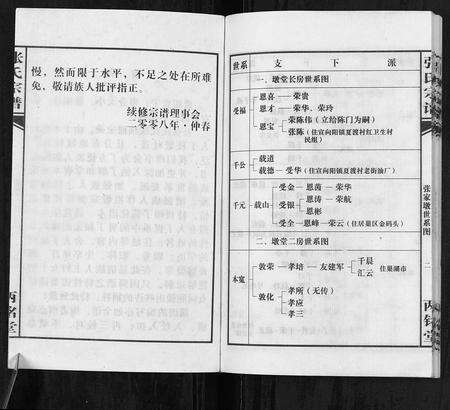 张氏宗谱
慢，然而限于水平，不足之处在所难
免，敬请族人批评指正。
续修宗谱理事会
二零零八年·仲春
两铭堂
张氏宗谱
世系 支下派
一、墩堂长房世系图
受福 恩喜—荣贵
恩才—荣华、荣玲
恩宝 荣陈伟（立给陈门为嗣）
张陈（住宣向阳镇夏渡村红卫生村
民组）
千公 载道
载德—受华（住宣向阳镇夏渡村老街油厂）
千元 载山 受金—恩茵—荣华
受银 恩涛—荣航
恩彬
受全—恩峰—荣云（住居巢区金码头）
二、墩堂二房世系图
本宽 敦荣—孝培—友建军 千晨
汇云 住巢湖市
敦化 孝所（无传）
孝应
孝三
张家墩世系图
二
两铭堂